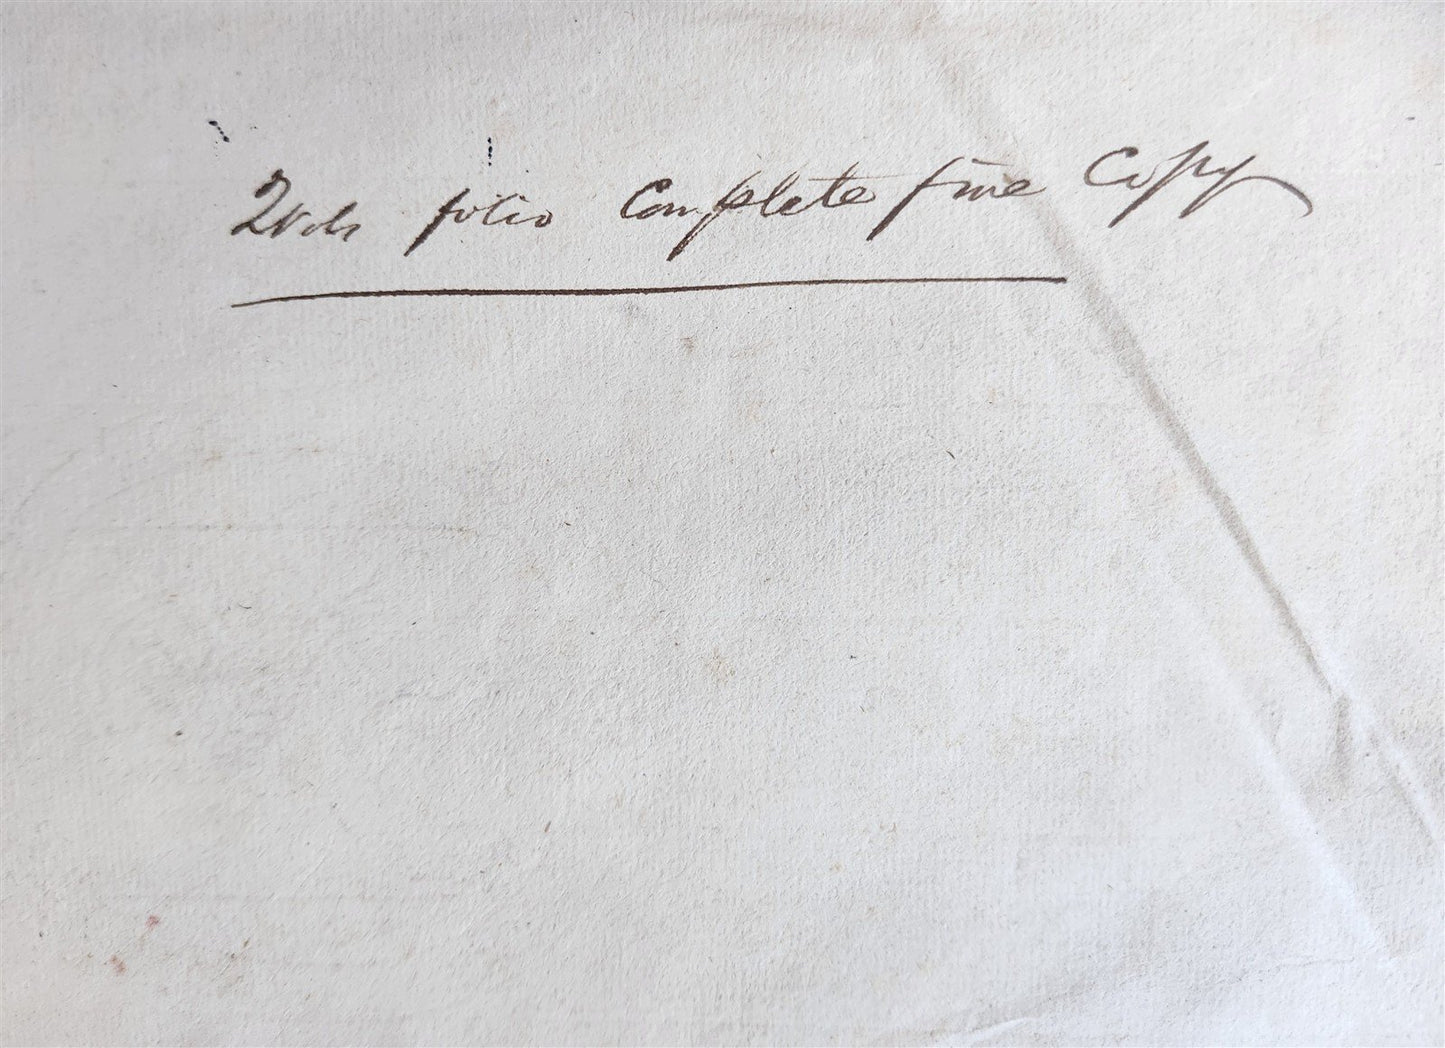 2 vols folio Complete fine Copy